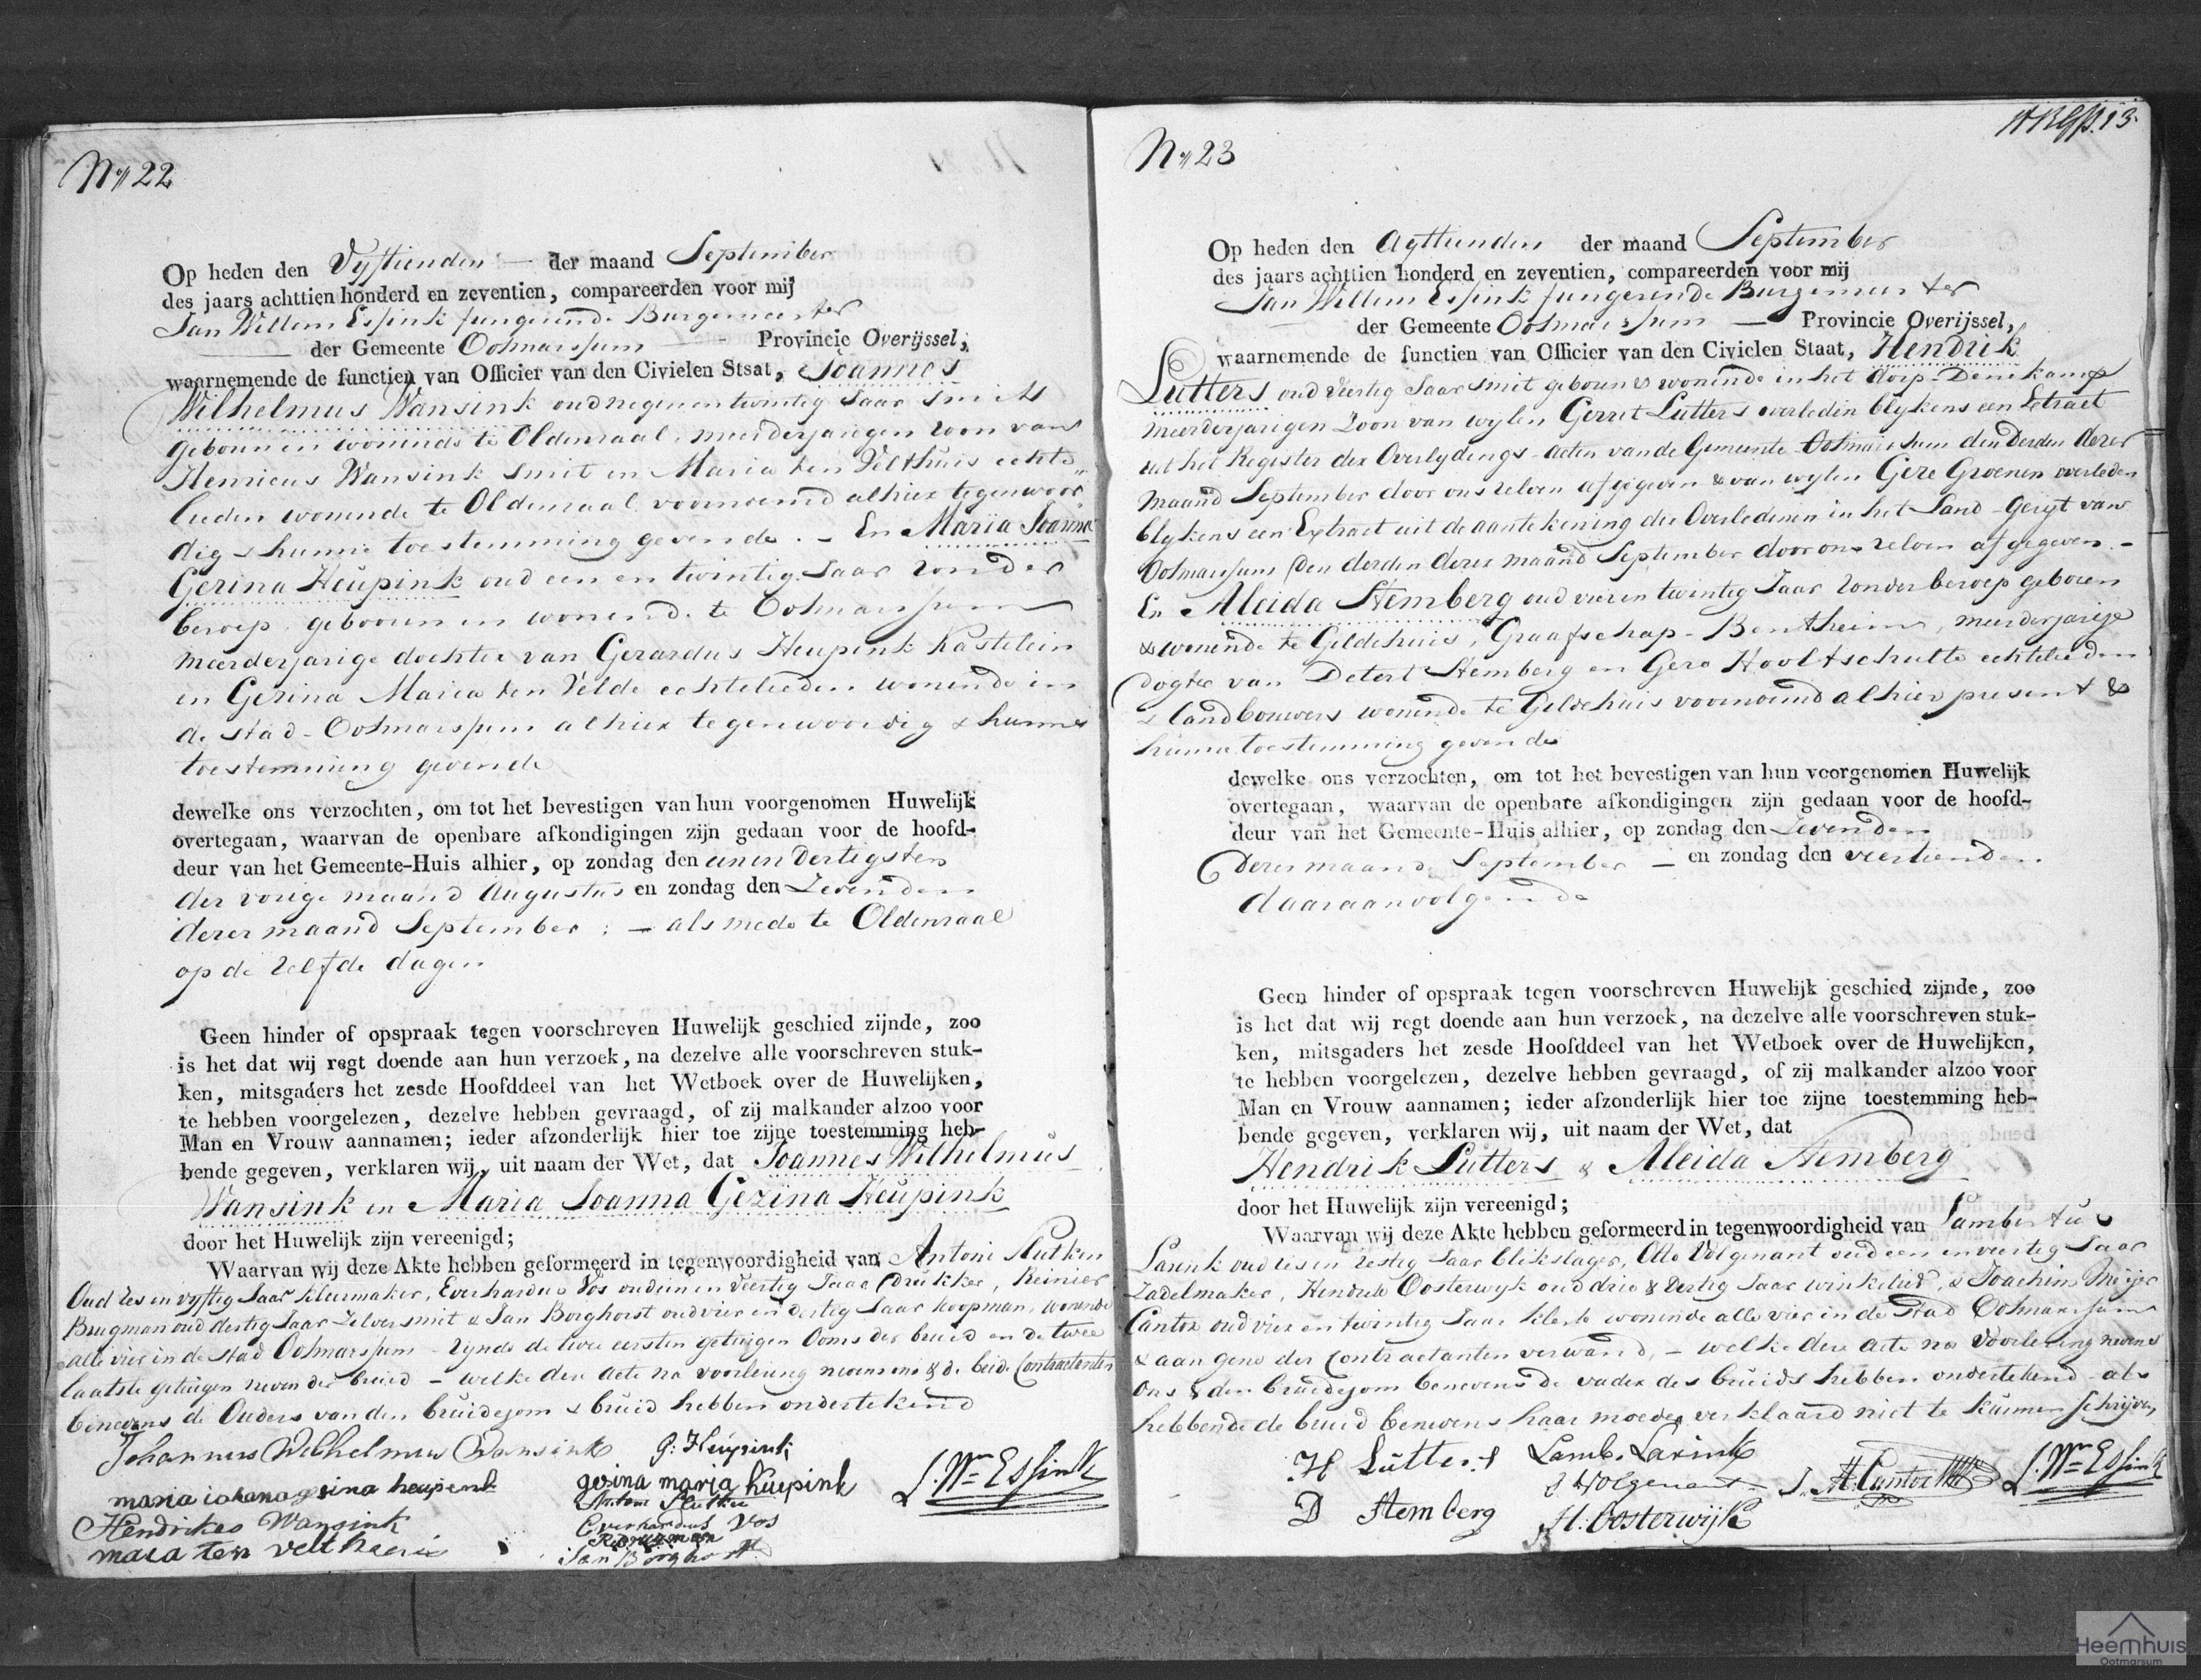 No 22
Op heden den Vyftienden — der maand September
des jaars achttien honderd en zeventien, compareerden voor mij
Jan Willem Essink fungerende Burgemeester
der Gemeente Ootmarssum — Provincie Overijssel,
waarnemende de functien van Officier van den Civielen Stsat, Joannes
Wilhelmus Wansink oud negen en twintig Jaar Smit
geboren en wonende te Oldenzaal, meerderjarigen zoon van
Henricus Wansink Smit en Maria ten Velthuis echte
lieden wonende te Oldenzaal voornoemd alhier tegenwoor
dig & hunne toestemming gevende. – En Maria Joanna
Gezina Heupink oud een en twintig Jaar zonder
beroep geboren en wonende te Ootmarssum
meerderjarige dochter van Gerardus Heupink Kastelein
en Gezina Maria ten Velde echtelieden wonende in
de stad Ootmarssum alhier tegenwoordig & hunne
toestemming gevende
dewelke ons verzochten, om tot het bevestigen van hun voorgenomen Huwelijk
overtegaan, waarvan de openbare afkondigingen zijn gedaan voor de hoofd-
deur van het Gemeente-Huis alhier, op zondag den eenen dertigsten
der vorige maand Augustus en zondag den Zevenden
dezer maand September; – als mede te Oldenzaal
op de zelfde dagen
Geen hinder of opspraak tegen voorschreven Huwelijk geschied zijnde, zoo
is het dat wij regt doende aan hun verzoek, na dezelve alle voorschreven stuk-
ken, mitsgaders het zesde Hoofddeel van het Wetboek over de Huwelijken,
te hebben voorgelezen, dezelve hebben gevraagd, of zij malkander alzoo voor
Man en Vrouw aannamen; ieder afzonderlijk hier toe zijne toestemming heb-
bende gegeven, verklaren wij, uit naam der Wet, dat Joannes Wilhelmus
Wansink en Maria Joanna Gezina Heupink
door het Huwelijk zijn vereenigd;
Waarvan wij deze Akte hebben geformeerd in tegenwoordigheid van Antoni
Oud zes en vyftig Jaar Kleermaker, Everhardus Vos oud een en Veertig Jaar Drukker, Reinier
Brugman oud dertig Jaar Zilversmit & Jan Borghorst oud vier en dertig Jaar koopman, wonende
alle vier in de stad Ootmarssum – zynde de twee eersten getuigen Ooms der bruid en de twee
laatste getuigen neven der bruid – welke deze acte na voorlezing nevens ons & de beide Contractanten
benevens de Ouders van den bruidegom & bruid hebben ondertekend
Johannes Wilhelmus Wansink G: Heupink
maria iohana gesina heupink gesina marja heupink J. Wm Essink
Hendrikes Wansink Everhardus Vos
R Brugman
mara ten velthuis Jan Borghorst
No 23
Op heden den Agttienden der maand September
des jaars achttien honderd en zeventien, compareerden voor mij
Jan Willem Essink fungerende Burgemeester
der Gemeente Ootmarssum — Provincie Overijssel,
waarnemende de functien van Officier van den Civielen Staat, Hendrik
Lutters oud Veertig Jaar Smit geboren & wonende in het dorp Denekamp
meerderjarigen Zoon van wylen Gerrit Lutters overleden blykens een Extract
uit het Register der Overlydings-acten van de Gemeente Ootmarssum den Derden dezer
maand September door ons zelven afgegeven & van wylen Geze Groenen overleden
blykens een Extract uit de aantekening der Overledenen in het Land-Gerigt van
Ootmarssum den derden dezer maand September door ons zelven afgegeven. –
En Aleida Stemberg oud vier en twintig Jaar zonder beroep geboren
& wonende te Gildehuis, Graafschap-Bentheim, meerderjarige
Dogter van Detert Stemberg en Gese Hooltschulte echtelieden
& landbouwers wonende te Gildehuis voornoemd alhier present &
hunne toestemming gevende
dewelke ons verzochten, om tot het bevestigen van hun voorgenomen Huwelijk
overtegaan, waarvan de openbare afkondigingen zijn gedaan voor de hoofd-
deur van het Gemeente-Huis alhier, op zondag den Zevenden
dezer maand September — en zondag den veertienden
daaraanvolgende
Geen hinder of opspraak tegen voorschreven Huwelijk geschied zijnde, zoo
is het dat wij regt doende aan hun verzoek, na dezelve alle voorschreven stuk-
ken, mitsgaders het zesde Hoofddeel van het Wetboek over de Huwelijken,
te hebben voorgelezen, dezelve hebben gevraagd, of zij malkander alzoo voor
Man en Vrouw aannamen; ieder afzonderlijk hier toe zijne toestemming heb-
bende gegeven, verklaren wij, uit naam der Wet, dat
Hendrik Lutters & Aleida Stemberg
door het Huwelijk zijn vereenigd;
Waarvan wij deze Akte hebben geformeerd in tegenwoordigheid van Lambertus
Larink oud zes en zestig Jaar blikslager, Otto Volgenant oud een en veertig Jaar
Zadelmaker, Hendrik Oosterwyk oud drie & dertig Jaar winkelier, & Joachim Meijer
Cantor oud vier en twintig Jaar Klerk wonende alle vier in de stad Ootmarssum
& aan gene der Contractanten verwand, – welke deze acte na Voorlezing nevens
ons & den bruidegom benevens de vader des bruids hebben ondertekend als
hebbende de bruid benevens haar moeder verklaard niet te kunnen schrijven
H Lutters Lamb. Larink
Volgenant J. M. Cantor J. Wm Essink
D Stemberg H: Oosterwijk
Heemhuis
Ootmarsum